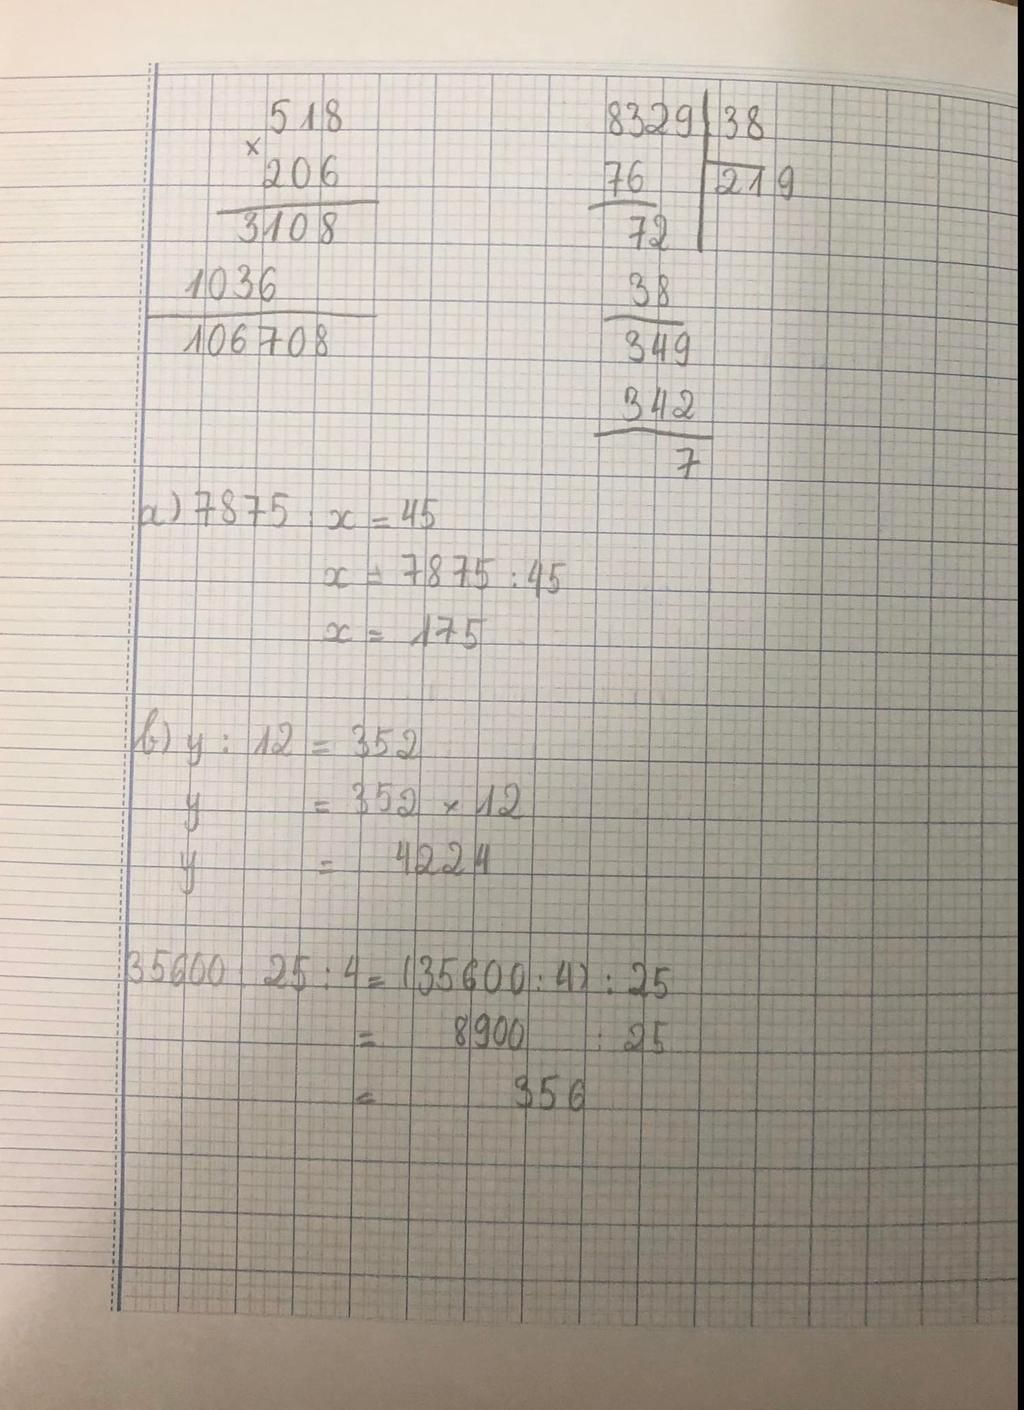 518
×
206
3108
1036
106708
8329 38
76 219
72
38
349
342
7
a) 7875 : x = 45
x = 7875 : 45
x = 175
b) y : 12 = 352
y = 352 × 12
y = 4224
35600 : 25 : 4 = (35600 : 4) : 25
= 8900 : 25
= 356